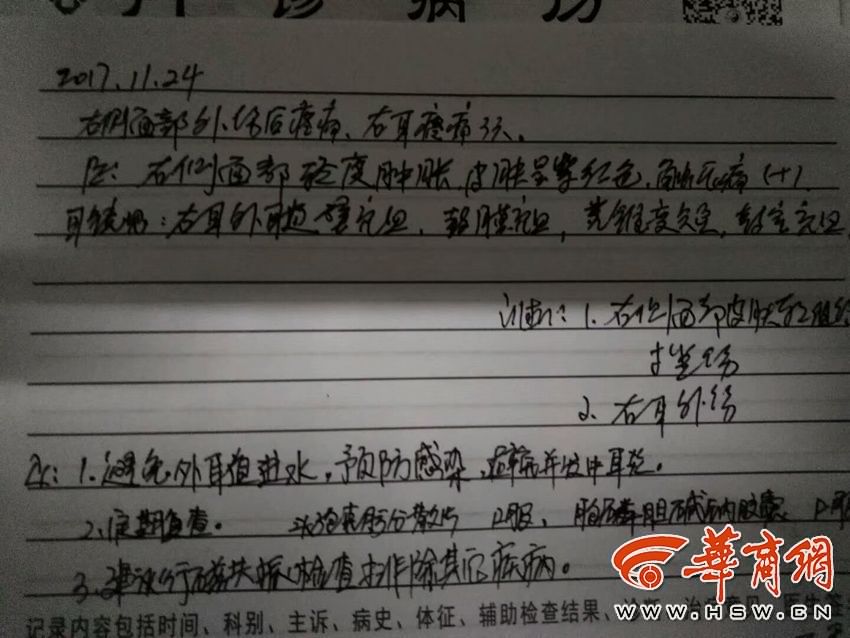 科 诊 病 历
2017.11.24
右侧面部外伤后疼痛、右耳疼痛3天。
右侧面部轻度肿胀,皮肤呈紫红色,压痛(+)
耳镜:右耳外耳道充血,鼓膜充血,
诊断:1.右侧面部皮肤软组织
挫伤
2.右耳外伤
1.避免外耳道进水,预防感染,并发中耳炎。
2.定期复查。 分散片 口服, 胶囊 口服
3.建议行磁共振检查排除其它疾病。
记录内容包括时间、科别、主诉、病史、体征、辅助检查结果、诊断、治疗意见
华商网
www.HSW.cn